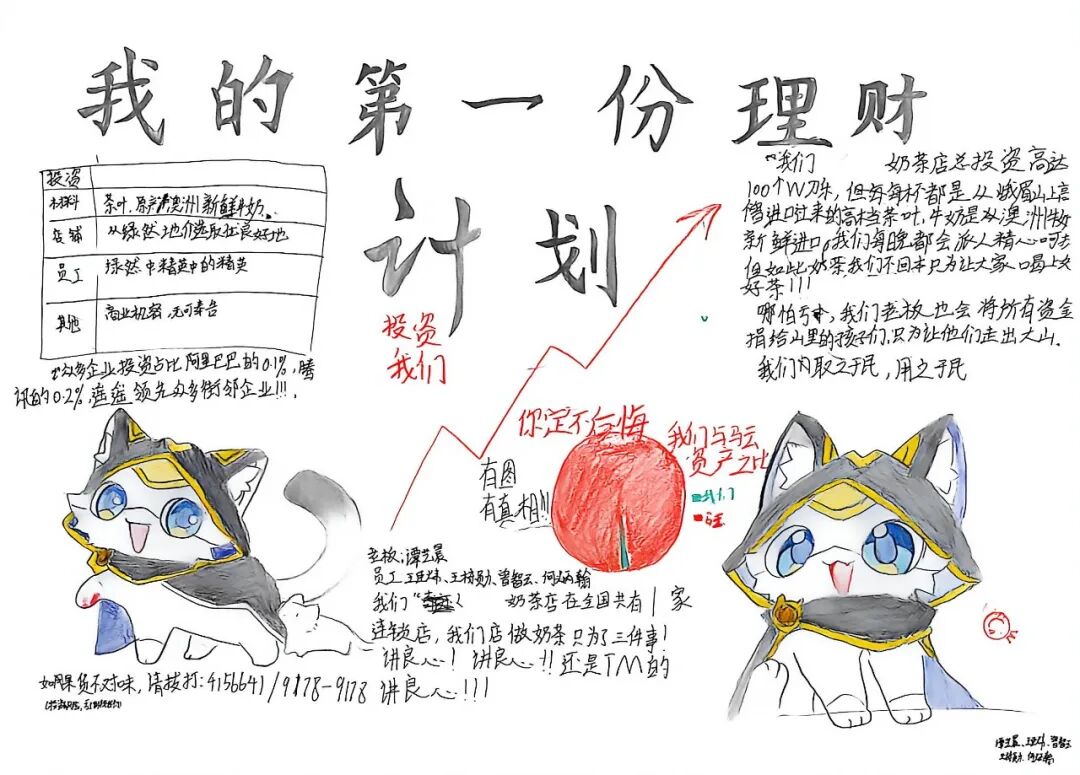 我的第一份理财
计划
投资
材料 茶叶、原产澳洲新鲜牛奶。
店铺 从绿然地价选取壮良好地
员工 绿然中精英中的精英
其他 商业机密,无可奉告
众多企业投资占比阿里巴巴的0.1%,腾
讯的0.2%,遥遥领先众多街邻企业!!!
投资
我们
“我们 奶茶店总投资高达
100个W刀乐,但每每杯都是从峨眉山上高
价进口过来的高档茶叶,牛奶是从澳洲牧
新鲜进口。我们每晚都会派人精心
但如此奶茶,我们不回本只为让大家口喝上好
好茶!!!
哪怕亏本,我们老板也会将所有资金
捐给山里的孩子们,只为让他们走出大山.
我们取之于民,用之于民
你定不后悔
有图
有真相!!
我们与马云
资产之比
我们
马云
老板:谭艺晨
员工:王、王、曾智云、何炳翰
我们“ 奶茶店在全国共有1家
连锁店,我们店做奶茶只为了三件事!
讲良心!讲良心!!还是TM的
讲良心!!!
如果货不对味,请拨打:4156641/9178-9178
谭艺晨、王、曾智云
王、何炳翰